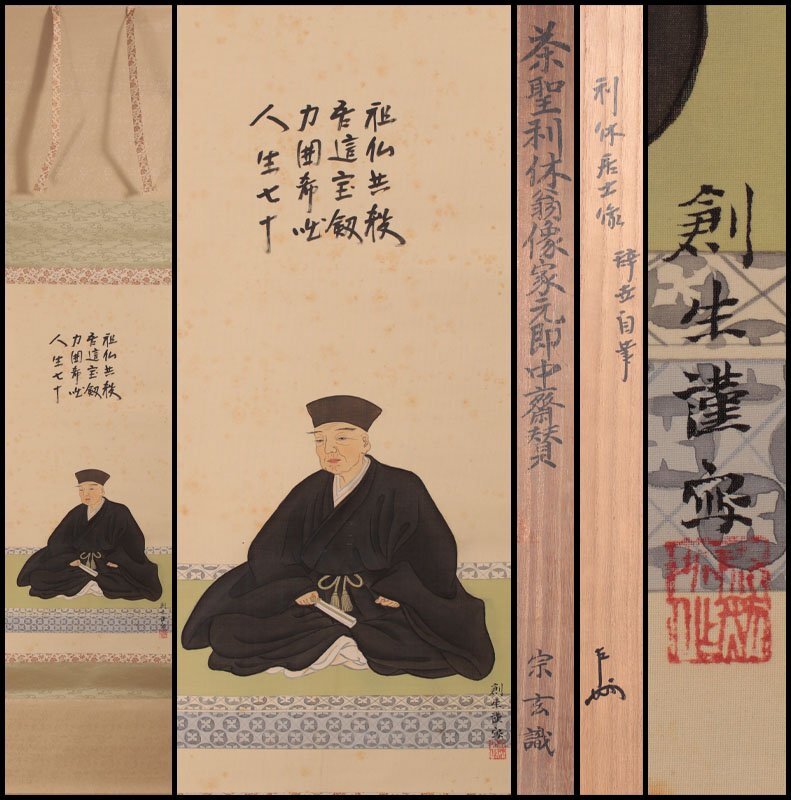 人生七十
力囲希咄
吾這宝釼
祖仏共殺
人生七十
力囲希咄
吾這宝釼
祖仏共殺
創生謹写
茶聖利休翁像家元即中齋賛
宗玄識
利休居士像
辞世自筆
左
創生謹写